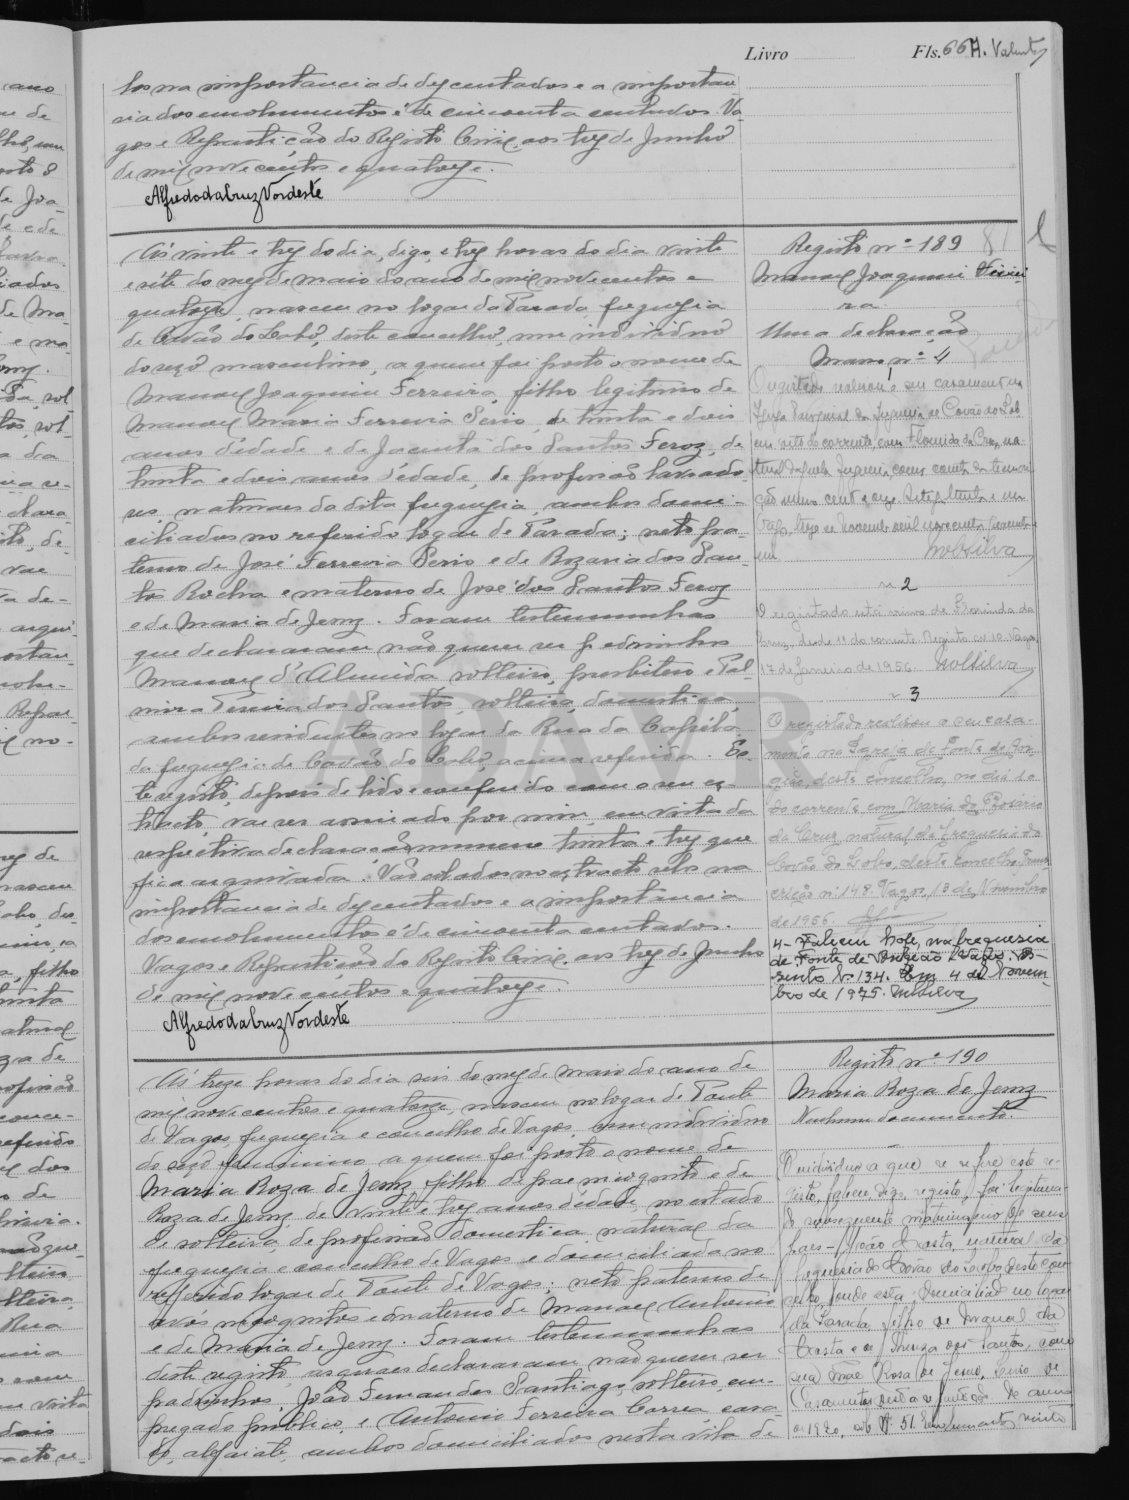 Livro Fls. 66 A. Valente
los na importancia de dez centados e a importan
cia dos emolumentos é de cincoenta centados. Va-
gos e Repartição do Registo Civil, aos trez de Junho
de mil novecentos e quatorze.
Alfredo da Cruz Nordeste
Ás vinte e trez do dia, digo, e trez horas do dia vinte
e sete do mez de maio do ano de mil novecentos e
quatorze, nasceu no logar da Parada, freguezia
de Covão do Lobo, deste concelho, um individuo
do sexo masculino, a quem foi posto o nome de
Manoel Joaquim Ferreira, filho legitimo de
Manoel Maria Ferreira Serio, de trinta e dois
anos d'edade e de Jacinta dos Santos Feroz, de
trinta e dois anos d'edade, de profissão lavrado-
res, naturaes da dita freguezia, ambos domi-
ciliados no referido logar de Parada; neto pa-
terno de José Ferreira Serio e de Rozaria dos San-
tos Rocha e materno de José dos Santos Feroz
e de Maria de Jesuz. Foram testemunhas
que declararam não querer ser padrinhos
Manoel d'Almeida, solteiro, presbitero e Pal-
mira Pereira dos Santos, solteira, domestica,
ambos residentes no logar da Rua da Capela
da freguezia de Covão do Lobo, acima referida. Es-
te registo, depois de lido e conferido com o seu ex-
tracto, vae ser assinado por mim, em vista da
respectiva declaração numero trinta e trez que
fica arquivada. Vão colados no extracto selos na
importancia de dez centados e a importancia
dos emolumentos é de cincoenta centados.
Vagos e Repartição do Registo Civil, aos trez de Junho
de mil novecentos e quatorze.
Alfredo da Cruz Nordeste
Registo nº 189
Manoel Joaquim Ferrei-
ra
Uma declaração
Maço nº 4
O registado realizou o seu casamento na
Igreja Paroquial da freguesia de Covão do Lobo
em oito do corrente, com Florinda da Cruz, na-
tural daquela freguesia, como consta da transcri-
ção numero cento e onze.
Vagos, treze de Novembro de mil novecentos e
um NobSilva
nº 2
O registado está viuvo de Florinda da
Cruz, desde 11 do corrente. Registo nº 10. Vagos,
17 de Janeiro de 1956. NobSilva
nº 3
O registado realizou o seu casa-
mento na Igreja de Fonte de An-
gião, deste concelho, no dia 10
do corrente com Maria do Rosario
da Cruz, natural da freguesia de
Covão do Lobo, deste concelho. Trans-
crição nº 148. Vagos, 13 de Novembro
de 1956.
4- Faleceu hoje, na freguesia
de Fonte de Angeão - Vagos. As-
sento Nº 134. Em 4 de Novem-
bro de 1975. NobSilva
Ás treze horas do dia seis do mez de maio do ano de
mil novecentos e quatorze, nasceu no logar de Ponte
de Vagos, freguezia e concelho de Vagos, um individuo
do sexo feminino a quem foi posto o nome de
Maria Roza de Jesuz, filha de pae incognito e de
Roza de Jesuz, de vinte e trez anos d'edade, no estado
de solteira, de profissão domestica, natural da
freguezia e concelho de Vagos e domiciliada no
referido logar de Ponte de Vagos; neta paterna de
avos incognitos e materna de Manoel Antonio
e de Maria de Jesuz. Foram testemunhas
deste registo, as quaes declararam não querer ser
padrinhos, João Fernandes Santiago, solteiro, em-
pregado publico, e Antonio Ferreira Correa, casa-
do, alfaiate, ambos domiciliados nesta vila de
Registo nº 190
Maria Roza de Jesuz
Nenhum documento.
O individuo a que se refere este re-
gisto, faleceu, digo, registo, foi legitima-
do subsequente matrimonio de seus
paes - João Costa, natural da
freguesia do Covão do Lobo, deste con-
celho, onde está domiciliado no logar
da Parada, filho de Manoel da
Costa e de Thereza dos Santos, com
sua mãe Rosa de Jesus,
Casamentos desta de anno
de 1920, sob nº 51